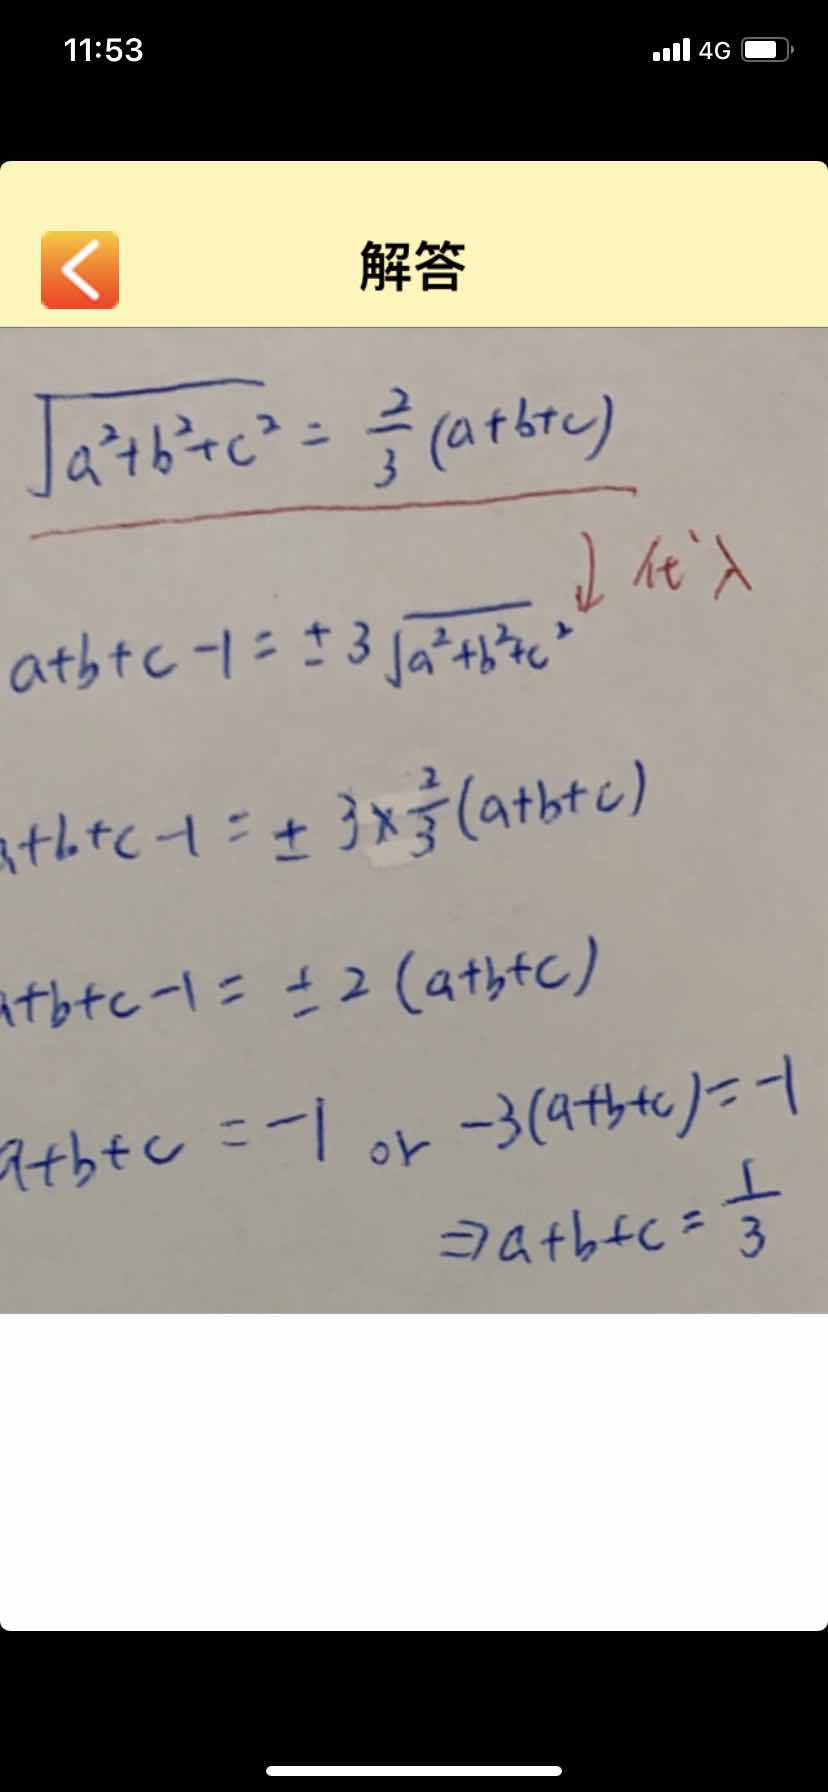 11:53 4G
解答
√a²+b²+c² = 2/3 (a+b+c)
↓ 代入
a+b+c-1 = ± 3√a²+b²+c²
a+b+c-1 = ± 3×2/3(a+b+c)
a+b+c-1 = ±2(a+b+c)
a+b+c = -1 or -3(a+b+c)=-1
⇒a+b+c = 1/3